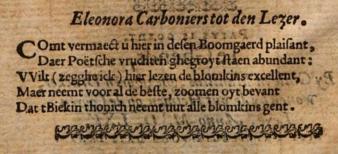 Eleonora Carboniers tot den Lezer.
COmt vermaect ú hier in desen Boomgaerd plaisant,
Daer Poëtsche vruchten ghegroyt staen abundant:
VVilt (zegghe ick) hier lezen de blomkins excellent,
Maer neemt voor al de beste, zoomen oyt bevant
Dat t'Biekin thonich neemt uut alle blomkins gent.